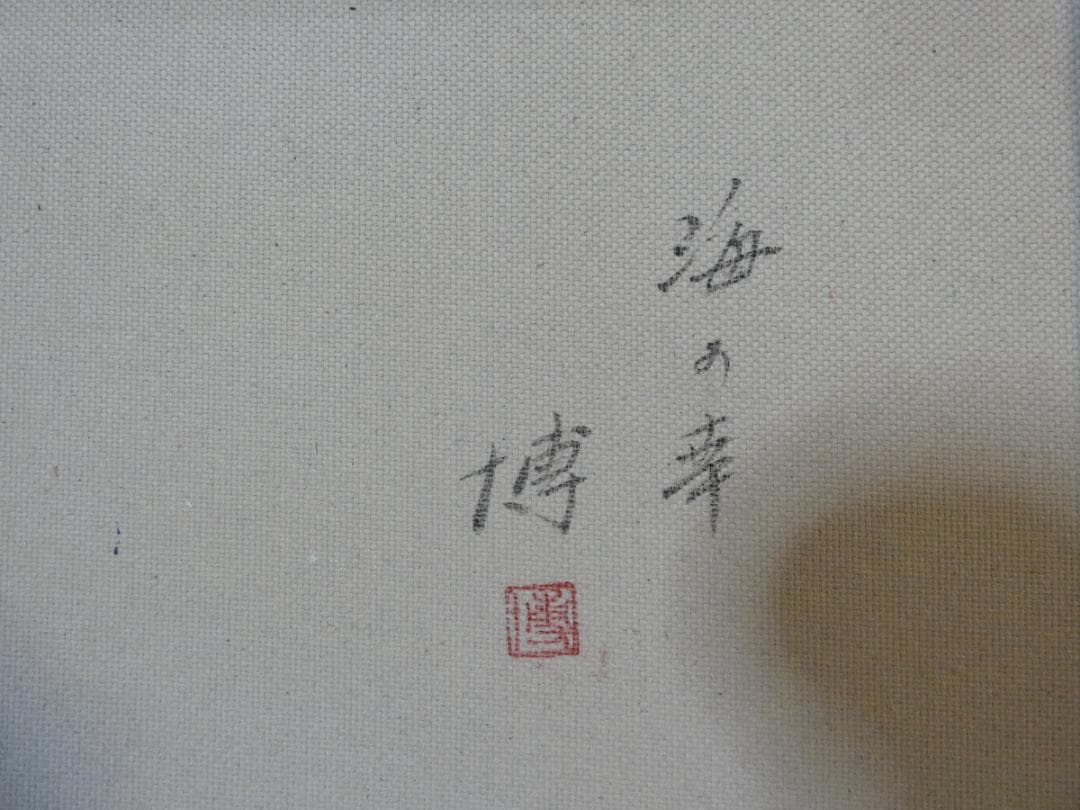 海の幸
博
博